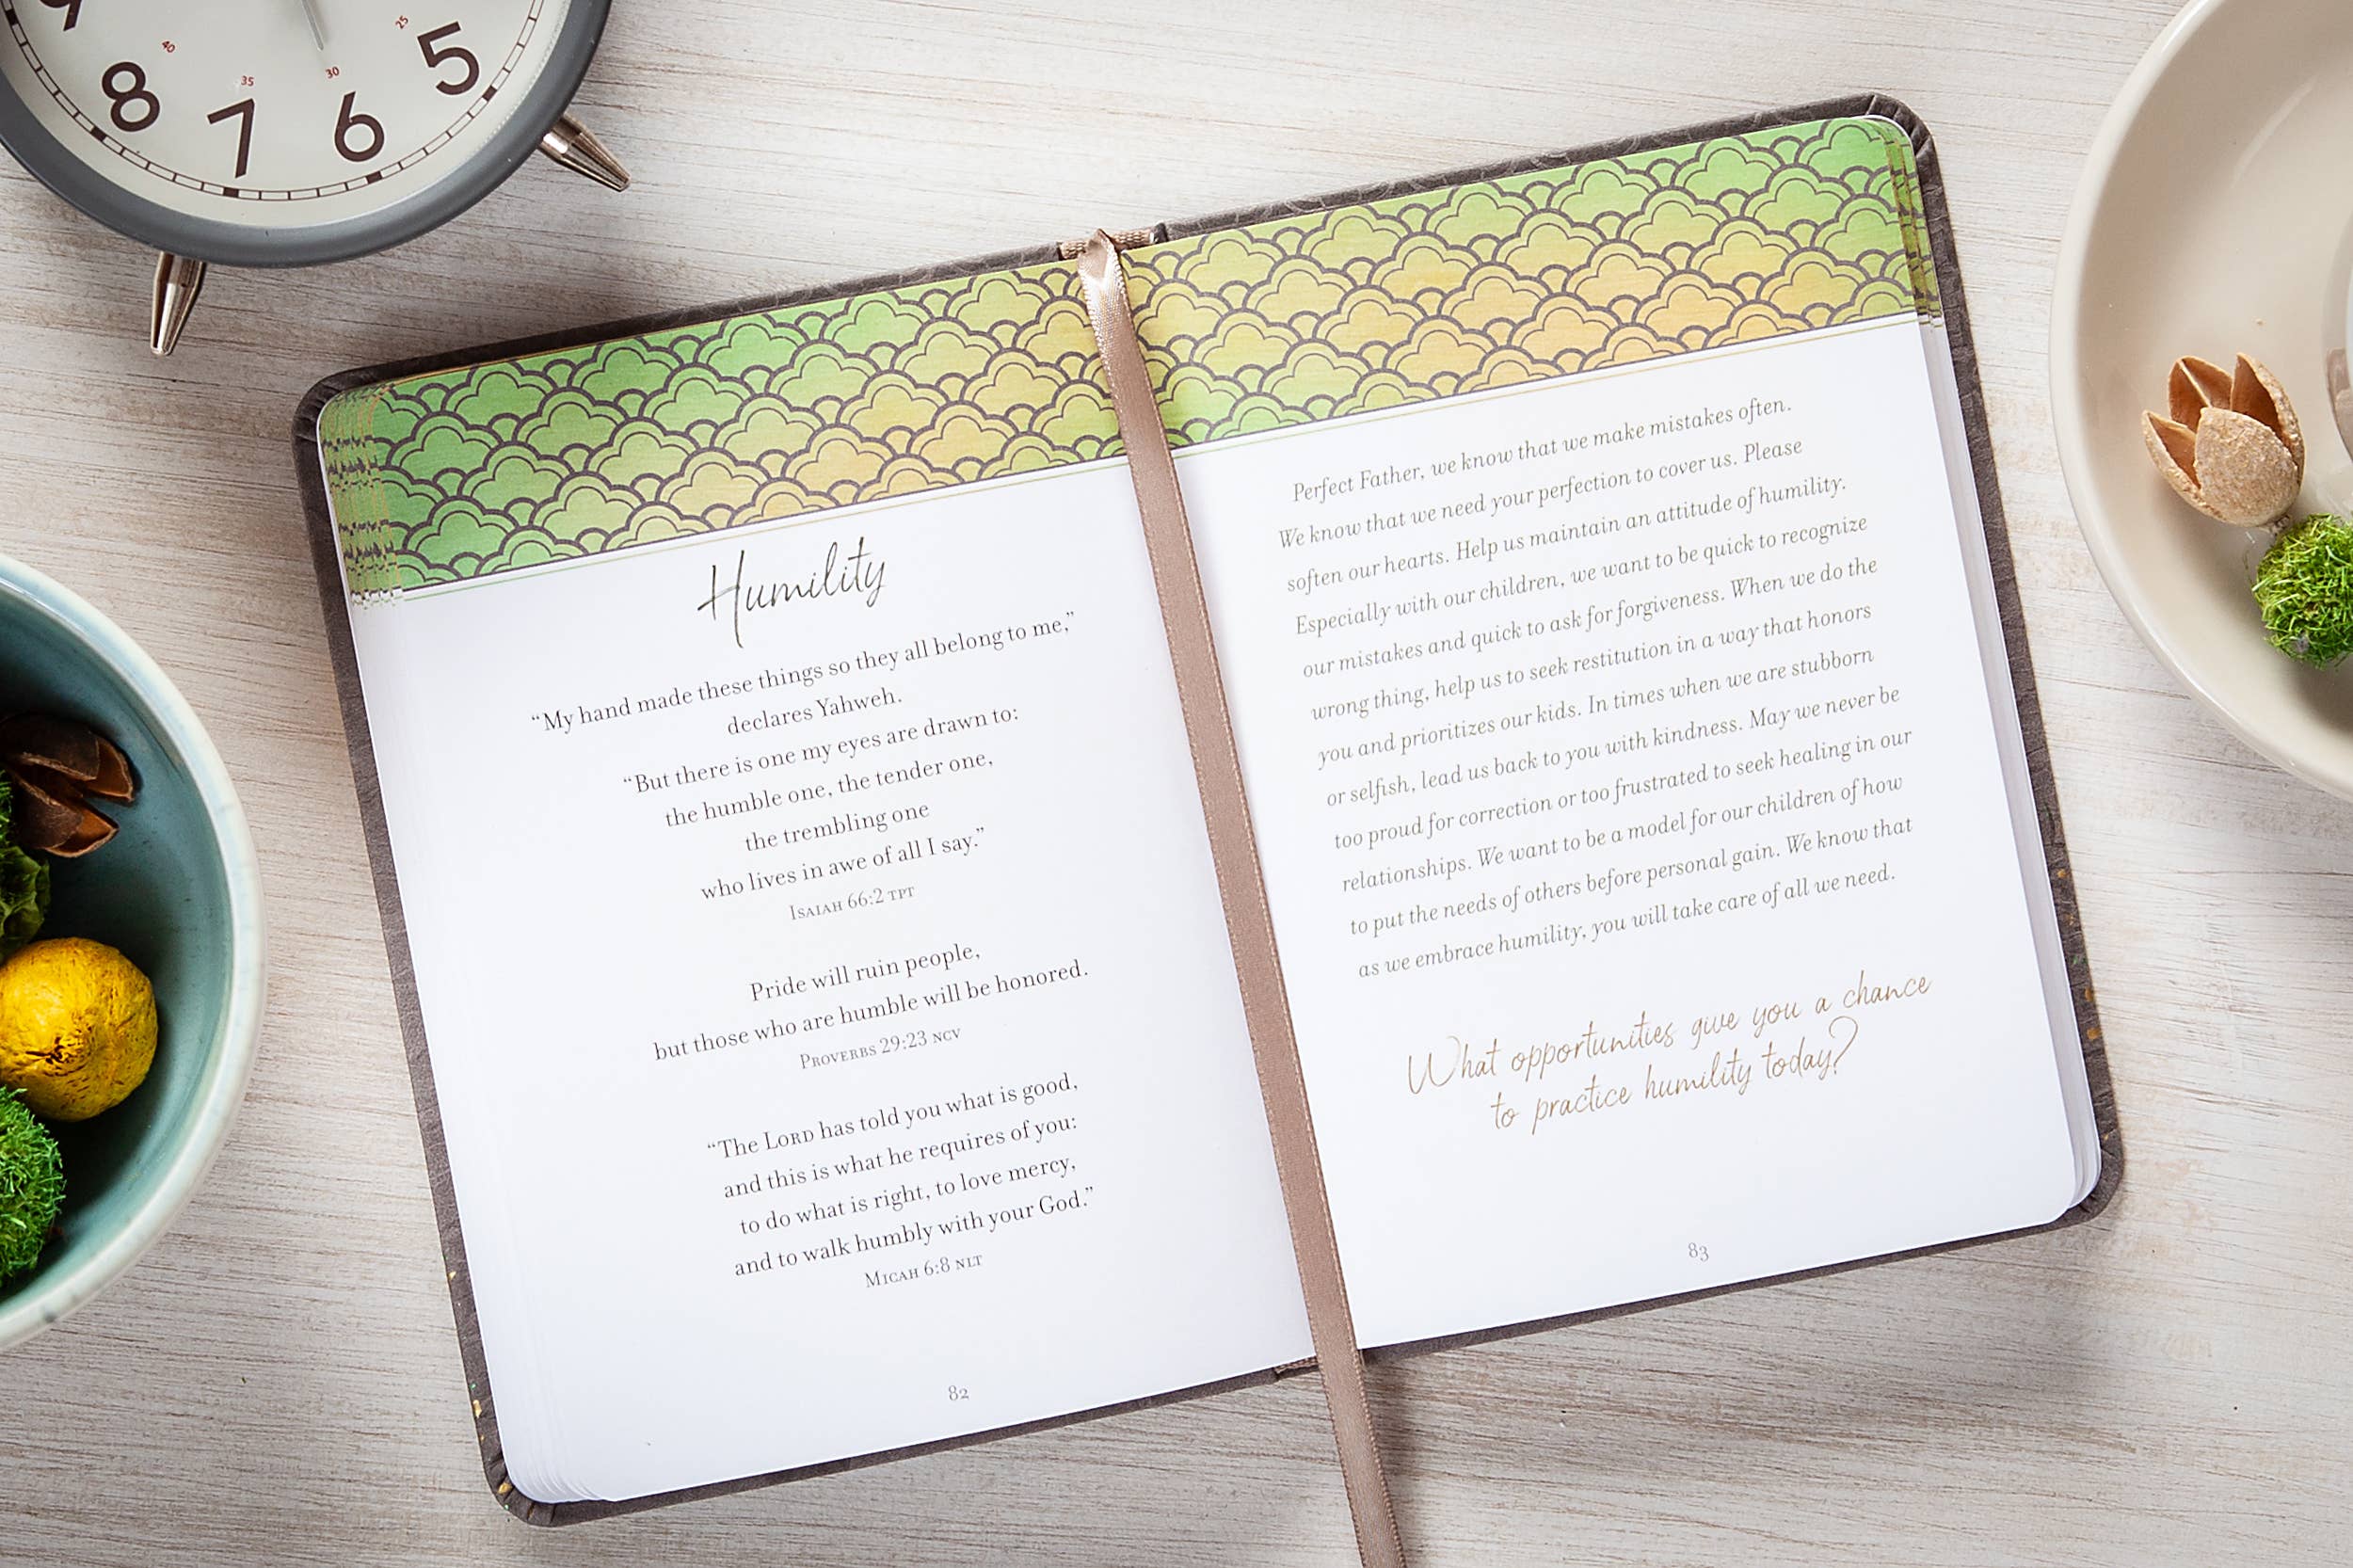 9
8
7
6
5
40
35
30
25
Humility
“My hand made these things so they all belong to me,”
declares Yahweh.
“But there is one my eyes are drawn to:
the humble one, the tender one,
the trembling one
who lives in awe of all I say.”
Isaiah 66:2 TPT
Pride will ruin people,
but those who are humble will be honored.
Proverbs 29:23 NCV
“The Lord has told you what is good,
and this is what he requires of you:
to do what is right, to love mercy,
and to walk humbly with your God.”
Micah 6:8 NLT
82
Perfect Father, we know that we make mistakes often.
We know that we need your perfection to cover us. Please
soften our hearts. Help us maintain an attitude of humility.
Especially with our children, we want to be quick to recognize
our mistakes and quick to ask for forgiveness. When we do the
wrong thing, help us to seek restitution in a way that honors
you and prioritizes our kids. In times when we are stubborn
or selfish, lead us back to you with kindness. May we never be
too proud for correction or too frustrated to seek healing in our
relationships. We want to be a model for our children of how
to put the needs of others before personal gain. We know that
as we embrace humility, you will take care of all we need.
What opportunities give you a chance
to practice humility today?
83